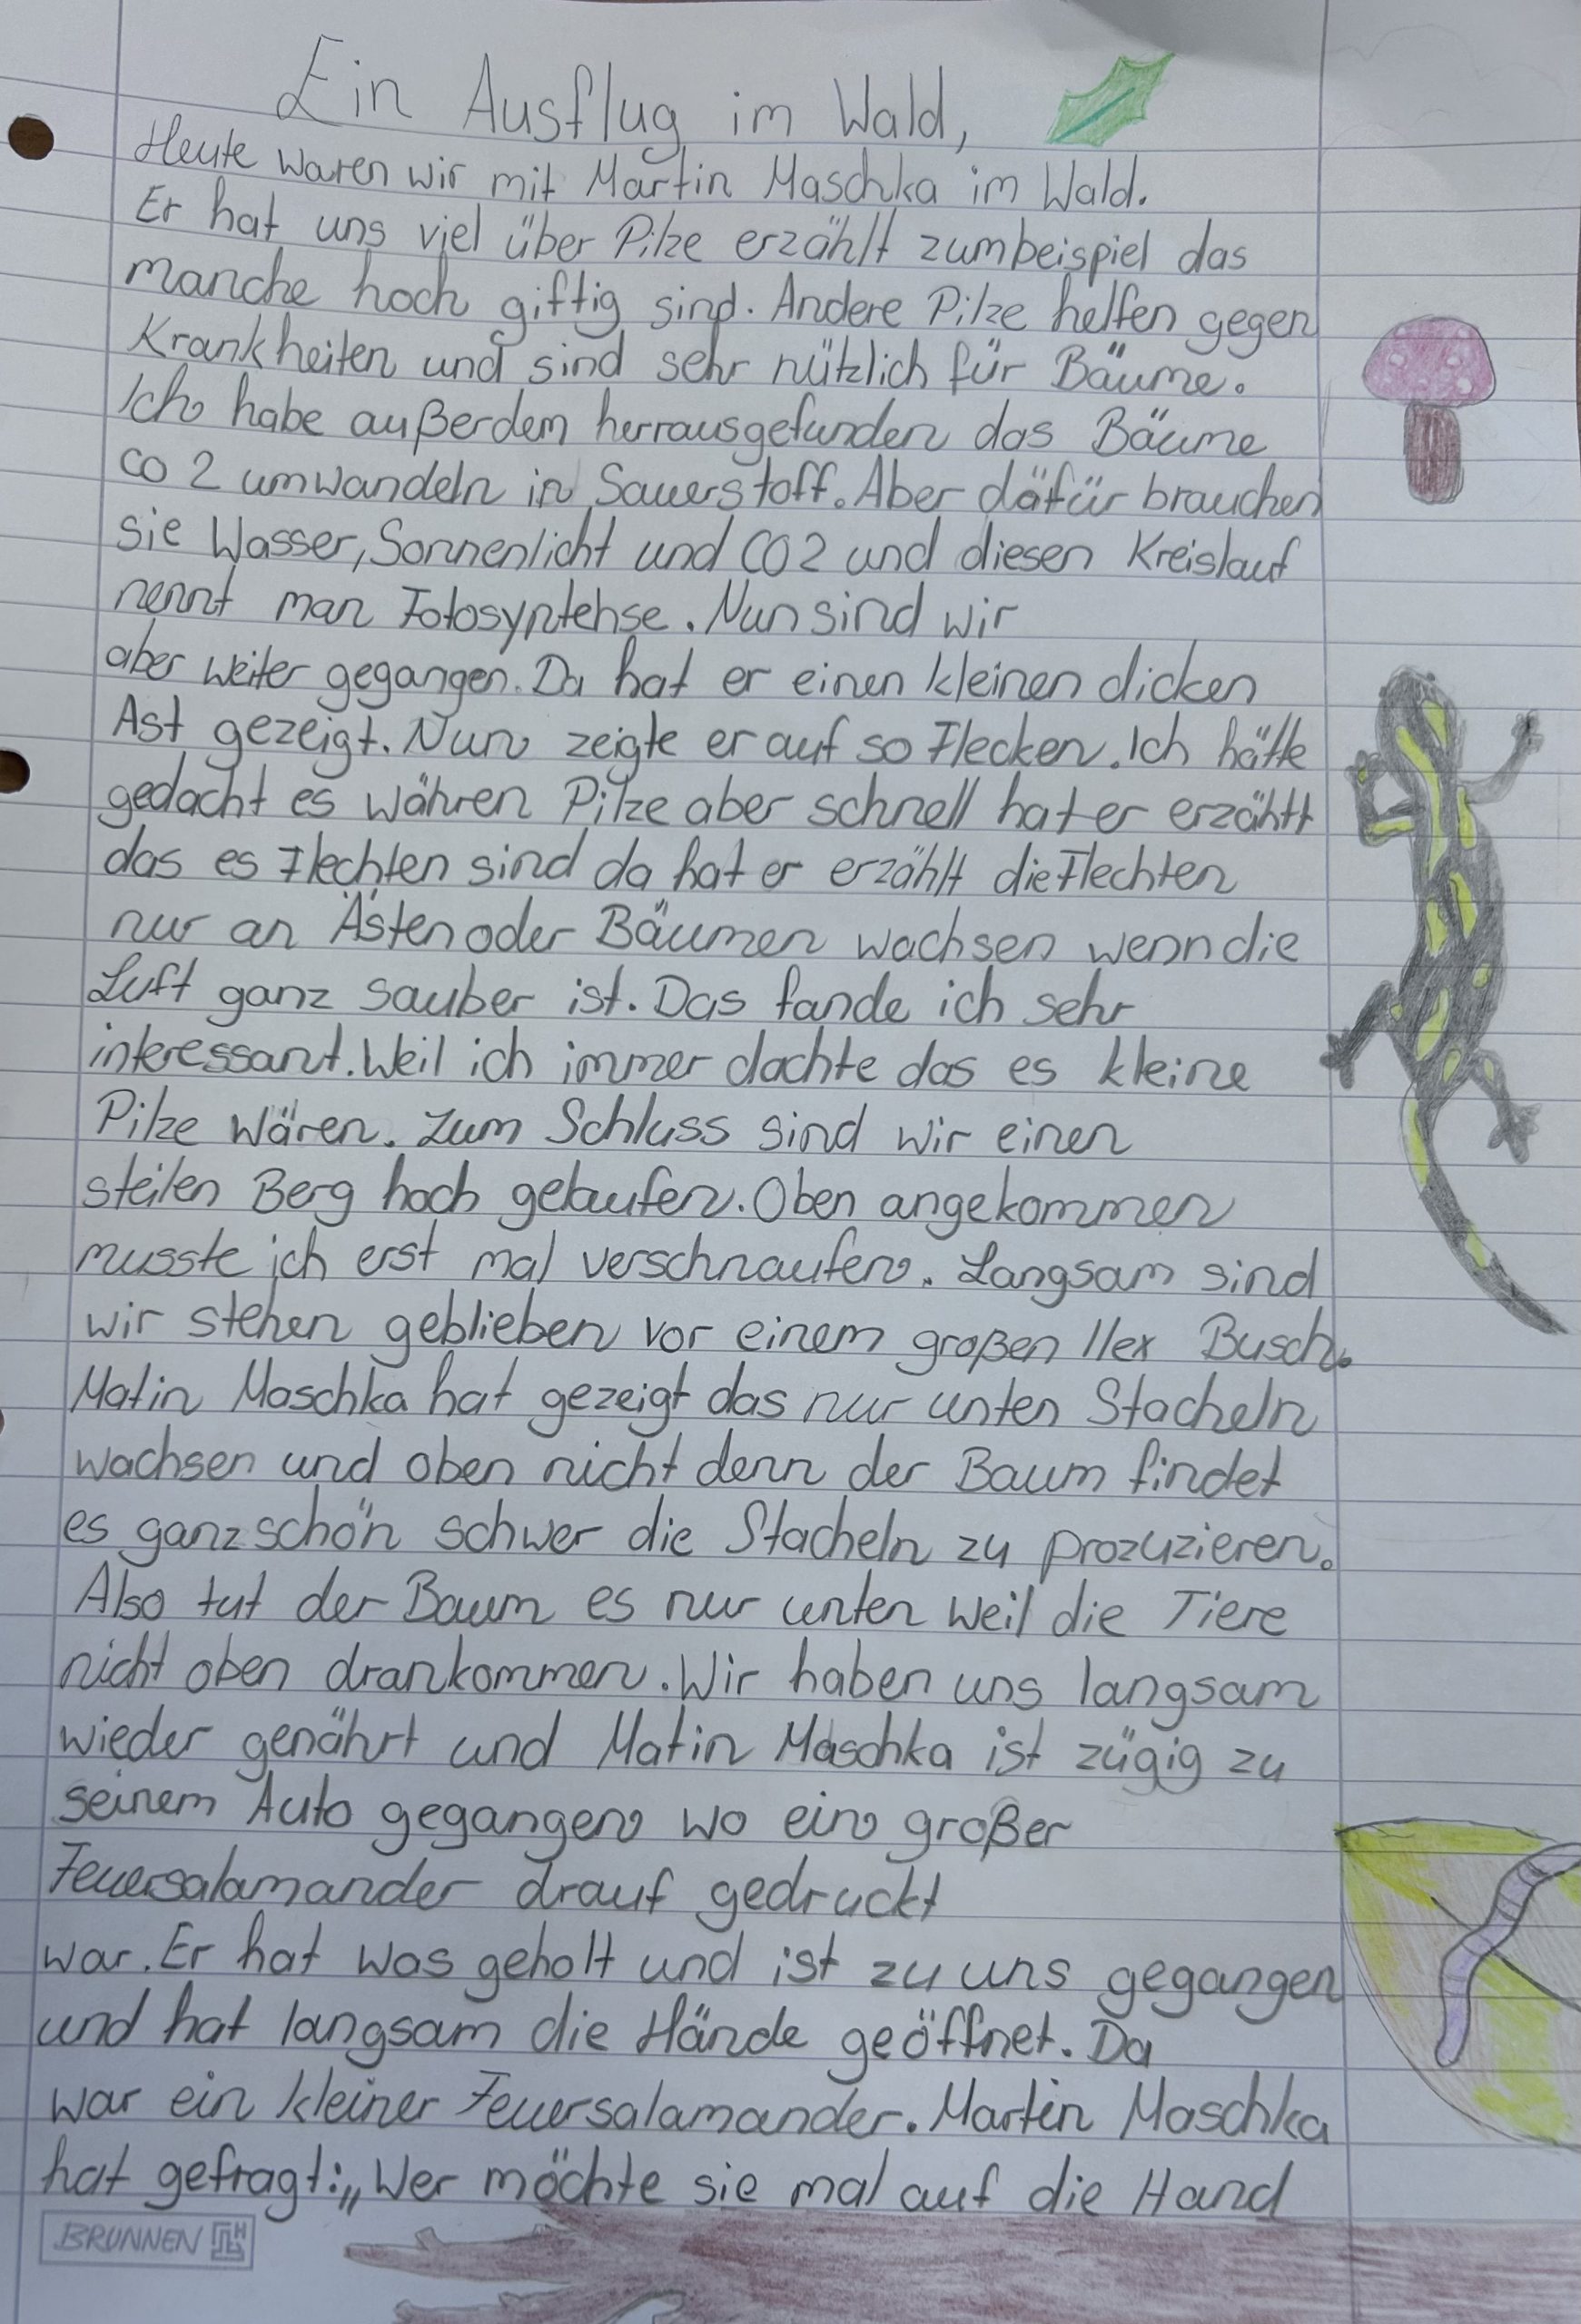 Ein Ausflug im Wald,
Heute waren wir mit Martin Maschka im Wald.
Er hat uns viel über Pilze erzählt zumbeispiel das
manche hoch giftig sind. Andere Pilze helfen gegen
Krankheiten und sind sehr nützlich für Bäume.
Ich habe außerdem herrausgefunden das Bäume
co 2 umwandeln in Sauerstoff. Aber däfür brauchen
sie Wasser, Sonnenlicht und CO2 und diesen Kreislauf
nennt man Fotosyntehse. Nun sind wir
aber weiter gegangen. Da hat er einen kleinen dicken
Ast gezeigt. Nun zeigte er auf so Flecken. Ich hätte
gedacht es währen Pilze aber schnell hat er erzählt
das es Flechten sind da hat er erzählt die Flechten
nur an Ästen oder Bäumen wachsen wenn die
Luft ganz sauber ist. Das fande ich sehr
interessant. Weil ich immer dachte das es kleine
Pilze wären. Zum Schluss sind wir einen
steilen Berg hoch gelaufen. Oben angekommen
musste ich erst mal verschnaufen. Langsam sind
wir stehen geblieben vor einem großen Ilex Busch.
Matin Maschka hat gezeigt das nur unten Stacheln
wachsen und oben nicht denn der Baum findet
es ganz schön schwer die Stacheln zu prozuzieren.
Also tut der Baum es nur unten weil die Tiere
nicht oben drankommen. Wir haben uns langsam
wieder genährt und Matin Maschka ist zügig zu
seinem Auto gegangen wo ein großer
Feuersalamander drauf gedruckt
war. Er hat was geholt und ist zu uns gegangen
und hat langsam die Hände geöffnet. Da
war ein kleiner Feuersalamander. Martin Maschka
hat gefragt: „Wer möchte sie mal auf die Hand
BRUNNEN